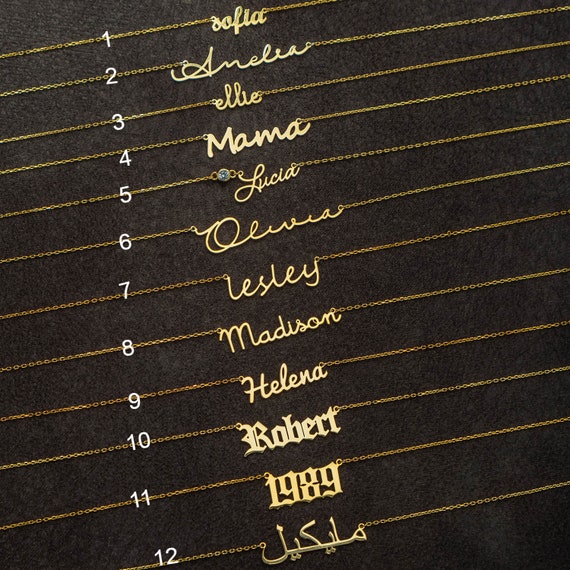 1 sofia
2 Amelia
3 ellie
4 Mama
5 Lucia
6 Olivia
7 lesley
8 Madison
9 Helena
10 Robert
11 1989
12 مايكيل